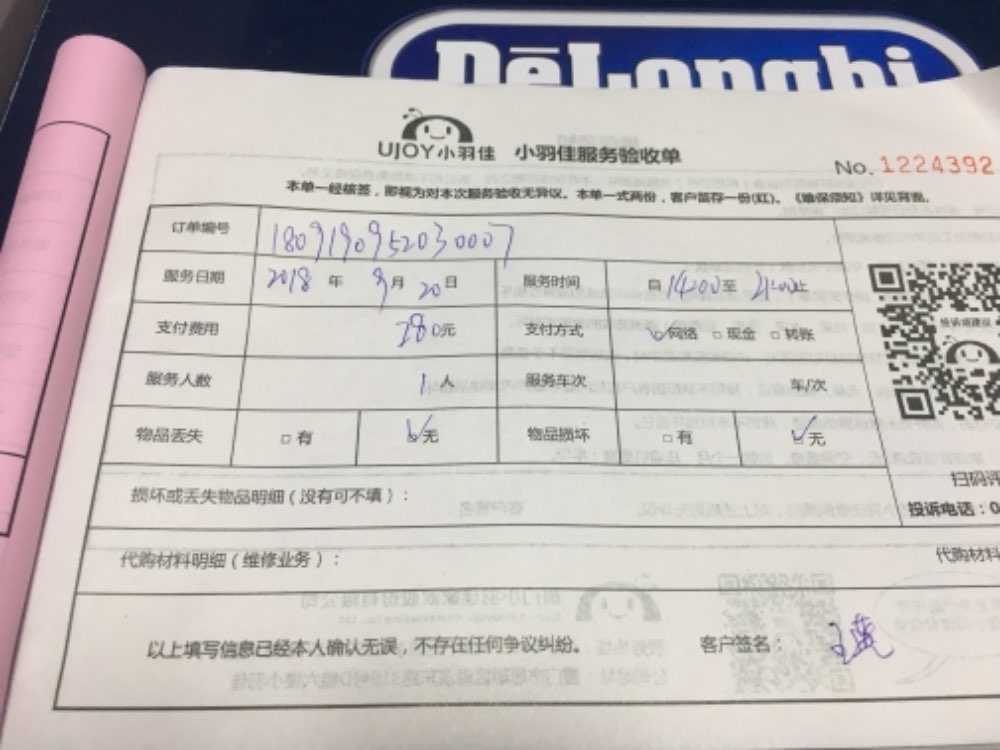 DēLonghi
UJOY小羽佳 小羽佳服务验收单
No. 1224392
本单一经核签，即视为对本次服务验收无异议。本单一式两份，客户留存一份(红)。《确保须知》详见背面。
订单编号 1809190952030007
服务日期 2018 年 9月 20日 服务时间 自 14:00至 21:00止
支付费用 280元 支付方式 ☑网络 □现金 □转账
服务人数 1人 服务车次 车/次
物品丢失 □有 ☑无 物品损坏 □有 ☑无
投诉或建议
扫码评
损坏或丢失物品明细（没有可不填）：
投诉电话：0
代购材料明细（维修业务）：
代购材料
以上填写信息已经本人确认无误，不存在任何争议纠纷。 客户签名：